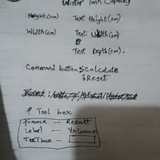 Water Tank Capacity
Height(cm) Text Height(cm)
Width(cm) Text Width(cm)
Text Depth(cm).
Command button; Calculate
; Reset
# Tool box
Frame - Result
Label - Volume
Text box -